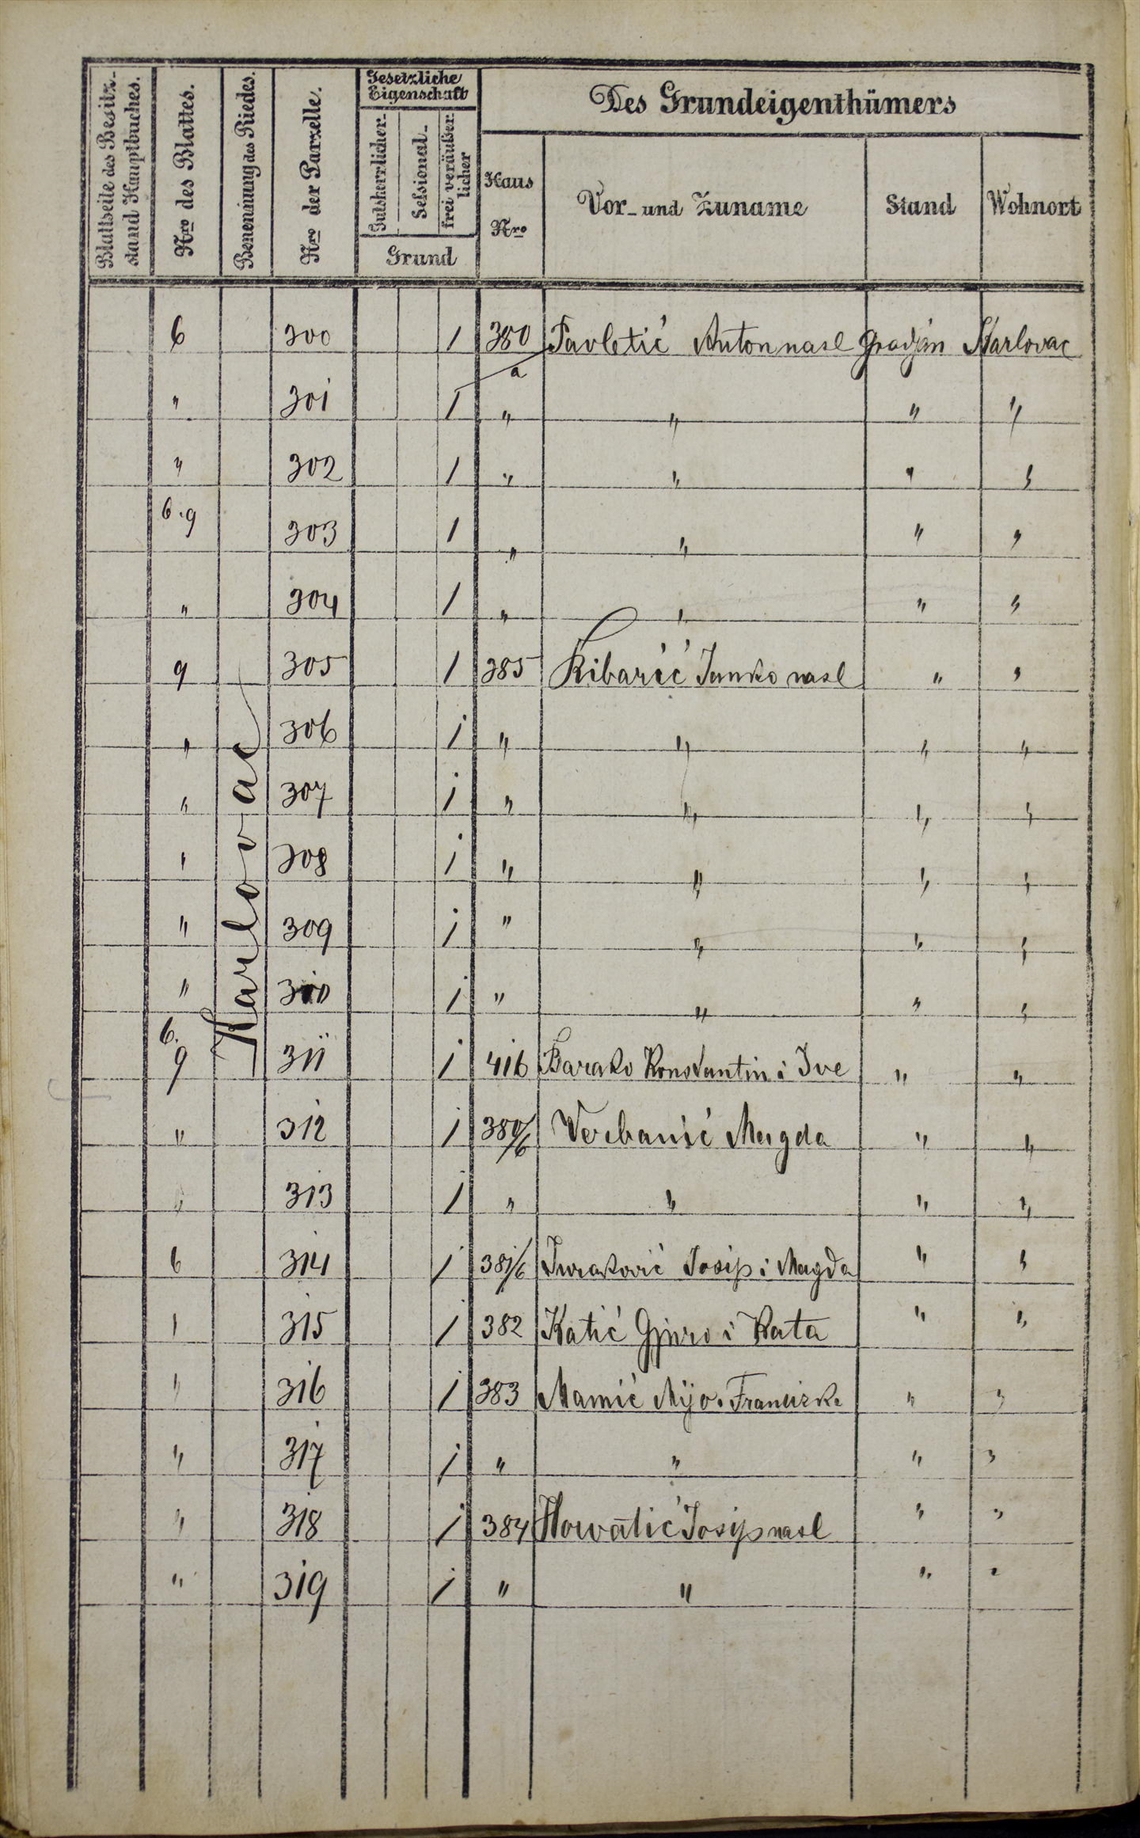 Blattseite des Besitz-
stand Hauptbuches.
Nro des Blattes.
Benennung des Riedes.
Nro der Parzelle.
Gesetzliche
Eigenschaft
Gutsherrlicher.
Sessional.
frei veräußer.
licher
Grund
Des Grundeigenthümers
Haus
Nro
Vor- und Zuname
Stand
Wohnort
Karlovac
6 300 1 380/a Pavletić Anton nasl gradjan Karlovac
" 301 1 " " " "
" 302 1 " " " "
6.9 303 1 " " " "
" 304 1 " " " "
9 305 1 385 Ribarić Janko nasl " "
" 306 1 " " " "
" 307 1 " " " "
" 308 1 " " " "
" 309 1 " " " "
" 310 1 " " " "
6.
9 311 1 416 Barako Konstantin i Ive " "
" 312 1 380/6 Verbanić Magda " "
" 313 1 " " " "
6 314 1 381/6 Josip i Magda " "
" 315 1 382 Katić Gjuro i Kata " "
" 316 1 383 Mamić Mijo i " "
" 317 1 " " " "
" 318 1 384 Josip nasl " "
" 319 1 " " " "